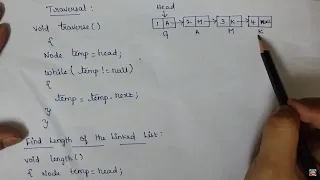 Traversal :
void traverse()
{
Node temp = head;
while( temp != null)
{
temp = temp.next;
}
}
Head
1 A 2 M 3 K 4 Null
G A M K
Find Length of the Linked List :
void length()
{ Node temp = head;